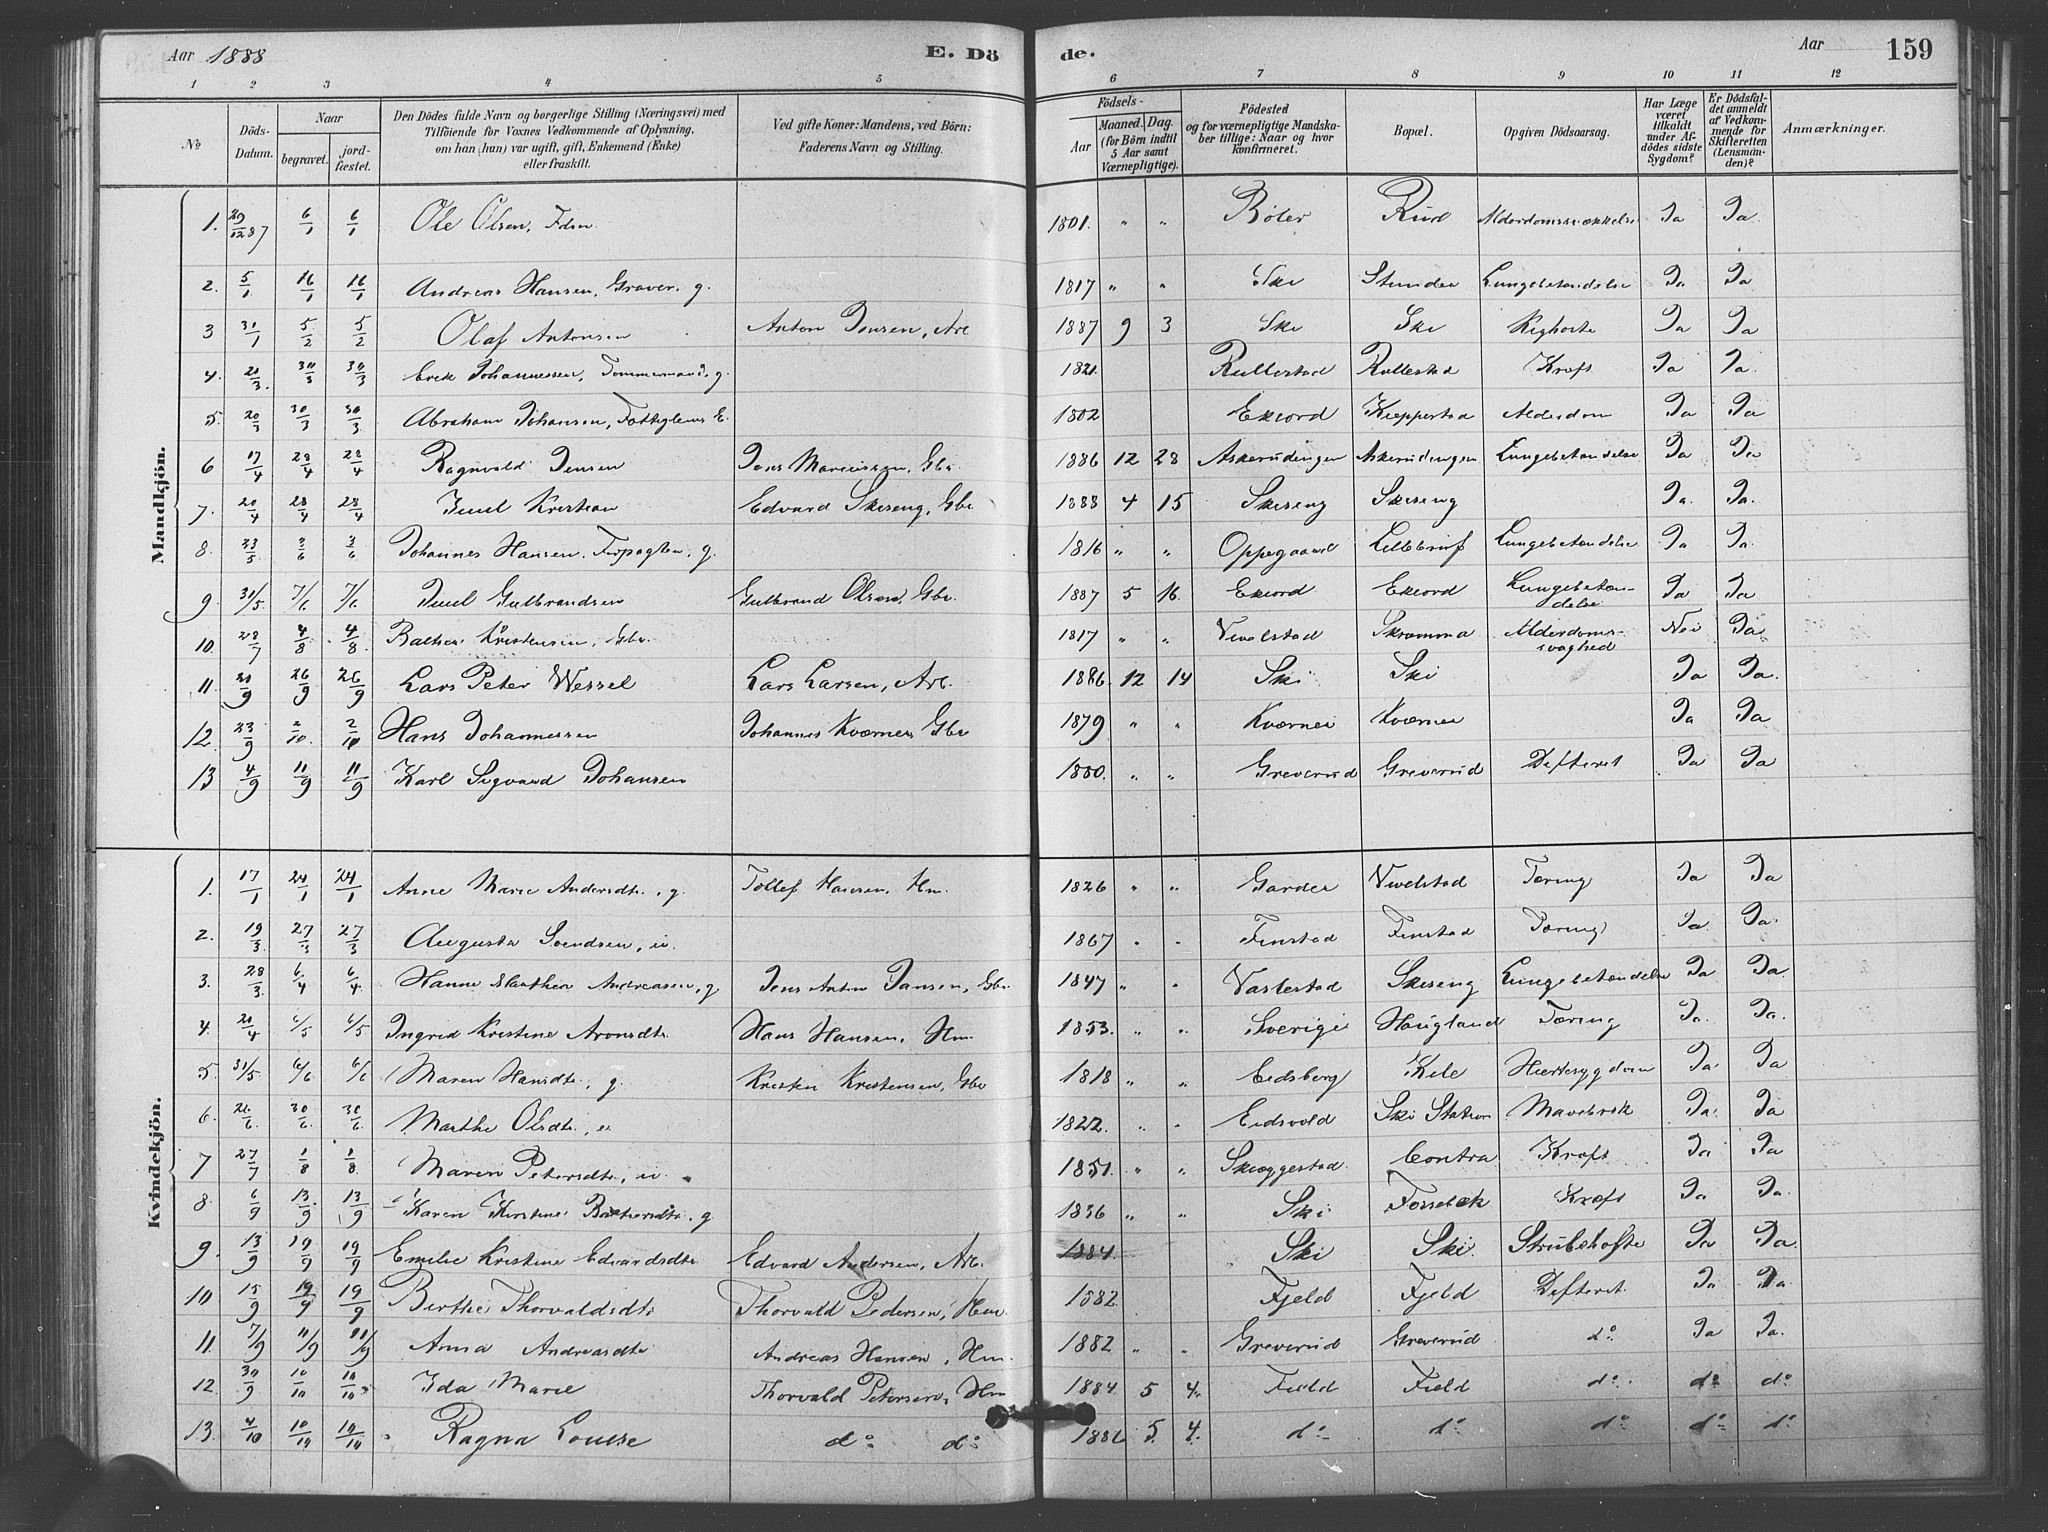 Aar 1888 E. Dö de. Aar 159
1 2 3 4 5 6 7 8 9 10 11 12
№ Döds-Datum. Naar begravet. jordfæstet. Den Dödes fulde Navn og borgerlige Stilling (Næringsvei) med Tilföiende for Voxnes Vedkommende af Oplysning, om han (hun) var ugift, gift, Enkemand (Enke) eller fraskilt. Ved gifte Koner: Mandens, ved Börn: Faderens Navn og Stilling. Födsels- Aar Maaned. Dag. (for Börn indtil 5 Aar samt Værnepligtige). Födested og for værnepligtige Mandskaber tillige: Naar og hvor konfirmeret. Bopæl. Opgiven Dödsaarsag. Har Læge været tilkaldt under Afdödes sidste Sygdom? Er Dödsfaldet anmeldt af Vedkommende for Skifteretten (Lensmanden)? Anmærkninger.
Mandkjön.
1. 29/12 87 6/1 6/1 Ole Olsen, Fdsn. 1801. " " Röler Rud Ja Ja
2. 5/1 16/1 16/1 Andreas Hansen, Graver, g. 1817 " " Ski Stunder Lungebetændelse Ja Ja
3 31/1 5/2 5/2 Olaf Antonsen Anton Jensen, Arb 1887 9 3 Ski Ski Kighoste Ja Ja
4. 20/3. 30/3 30/3 Erik Johannessen, Tömmermand, g. 1821. Rullestad Rullestad Kræft Ja Ja.
5. 20/3 30/3 30/3. Abraham Johansen, Fattiglem E. 1802 Ekeord Kieppestad Alderdom Ja Ja
6 17/4 28/4 28/4 Ragnvald Jensen Jens Gbr. 1886 12 28 Askerudengen Askerudengen Lungebetændelse Ja Ja
7. 20/4 28/4 28/4 Juul Kristian Edvard Skiseng, Gbr 1888 4 15 Skiseng Skiseng Ja. Ja.
8. 23/5 2/6 2/6 Johannes Hansen, g. 1816 " " Oppegaard Lungebetændelse Ja Ja.
9. 31/5 7/6 7/6 Juul Gulbrandsen Gulbrand Olsen, Gbr. 1887 5 16. Ekeord Ekeord Lungebetændelse Ja Ja
10. 28/7 4/8 4/8. Kristensen, Gbr. 1817 " " Vevelstad Skramma Alderdomssvaghed Nei Ja.
11. 20/9 26/9 26/9 Lars Peter Wessel Lars Larsen, Arb. 1886. 12 14 Ski Ski Ja Ja.
12. 23/9 2/10. 2/10 Hans Johannessen Johannes Kværner Gbr 1879 " " Kværner Kværner Ja Ja
13 4/9 11/9 11/9 Karl Sigvard Johansen 1880. " " Greverud Greverud Difterit Ja Ja
Kvindekjön.
1. 17/1 24/1 24/1 Anne Marie Andersdtr., g. Tollef Hansen, Hm. 1826 " " Garder Vevelstad Tæring Ja Ja
2. 19/3. 27/3 27/3 Augusta Svendsen, u. 1867 " " Finstad Finstad Tæring Ja. Ja.
3. 28/3. 6/4 6/4 Hanne Marthea Andreasen, g Jens Anton Jansen, Gbr. 1847 " " Vaslestad Skiseng Lungebetændelse Ja Ja
4. 20/4 6/5 6/5 Ingrid Kristine Aronsdtr. Hans Hansen, Hm. 1853. " " Sverige Haugland Tæring Ja. Ja.
5. 31/5 6/6 6/6 Maren Hansdtr, g. Kristen Kristensen, Gbr 1818 " " Eidsberg Hjertesygdom Ja Ja
6. 26/6 30/6 30/6. Marthe Olsdtr., e. 1822. " " Eidsvold Ski Station Mavebrok Ja. Ja
7 27/7 1/8 1/8 Maren Petersdtr, u. 1851. " " Skieggestad Contra Kræft Ja Ja
8. 6/9 13/9 13/9 Karen Kirstine Baltersdtr. g. 1836 " " Ski Fosseбæk Kræft Ja Ja.
9. 13/9 19/9 19/9 Emilie Kristine Edvardsdtr. Edvard Andersen, Arb. 1884. Ski Ski. Strubehoste Ja Ja.
10 15/9 19/9 19/9 Berthe Thorvaldsdtr Thorvald Pedersen, Hm. 1882. Fjeld Fjeld Difterit. Ja Ja.
11. 7/9 11/9 11/9 Anna Andreasdtr Andreas Hansen, Hm. 1882 " " Greverud Greverud do. Ja Ja.
12. 30/9 10/10 10/10. Ida Marie Thorvald Petersen, Hm 1884. 5 4. Fjeld Fjeld do. do do.
13. 4/10 10/10 10/10. Ragna Louise do do 5. 4. do. do. do. do. do.